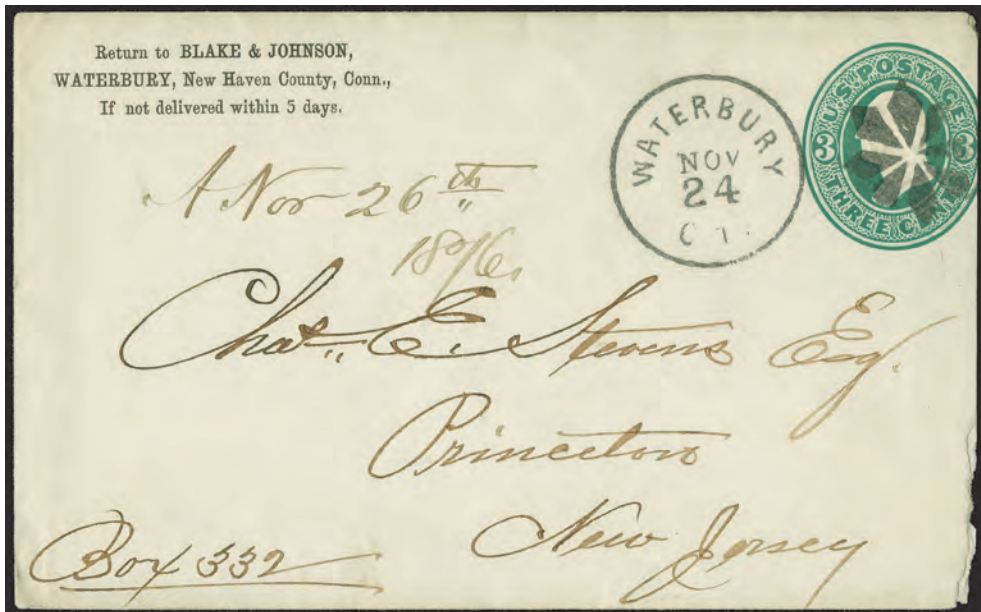 Return to BLAKE & JOHNSON,
WATERBURY, New Haven County, Conn.,
If not delivered within 5 days.
WATERBURY
NOV
24
CT.
U.S. POSTAGE
3 3
THREE CENTS
A Nov 26th
1876.
Chas. E. Stevens Esq.
Princeton
New Jersey
Box 332